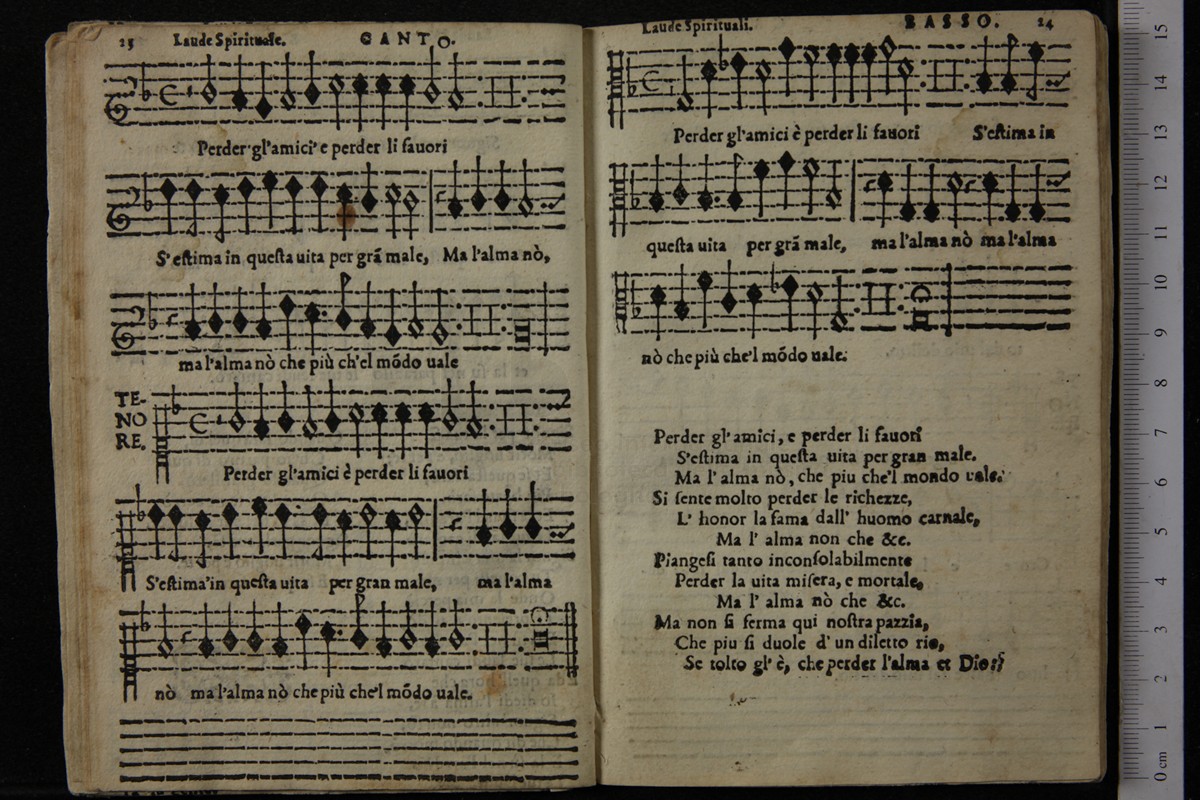 25 Laude Spirituale. CANTO.
Perder gl'amici e perder li fauori
S'estima in questa uita per grã male, Ma l'alma nò,
ma l'alma nò che più ch'el mõdo uale
TE-
NO
RE.
Perder gl'amici è perder li fauori
S'estima in questa uita per gran male, ma l'alma
nò ma l'alma nò che più che'l mõdo uale.
Laude Spirituali. BASSO. 24
Perder gl'amici è perder li fauori S'estima in
questa uita per grã male, ma l'alma nò ma l'alma
nò che più che'l mõdo uale.
Perder gl' amici, e perder li fauori
S'estima in questa uita per gran male.
Ma l' alma nò, che piu che'l mondo uale.
Si sente molto perder le richezze,
L' honor la fama dall' huomo carnale,
Ma l' alma non che &c.
Piangesi tanto inconsolabilmente
Perder la uita misera, e mortale,
Ma l' alma nò che &c.
Ma non si ferma qui nostra pazzia,
Che piu si duole d' un diletto rio,
Se tolto gl' è, che perder l'alma et Dio!
15
14
13
12
11
10
9
8
7
6
5
4
3
2
1
0 cm